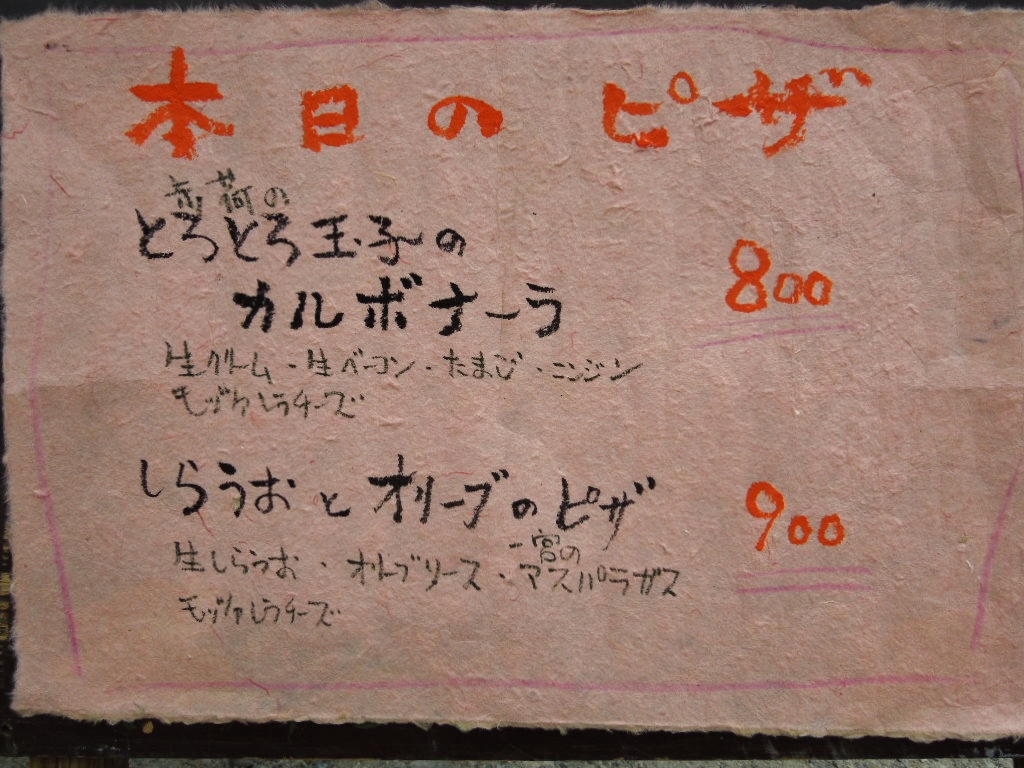 本日のピザ
荷の
とろとろ玉子の
カルボナーラ
800
生クリーム・生ベーコン・たまご・ニンジン
モッツァレラチーズ
しらうおとオリーブのピザ
900
一宮の
生しらうお・オリーブソース・アスパラガス
モッツァレラチーズ